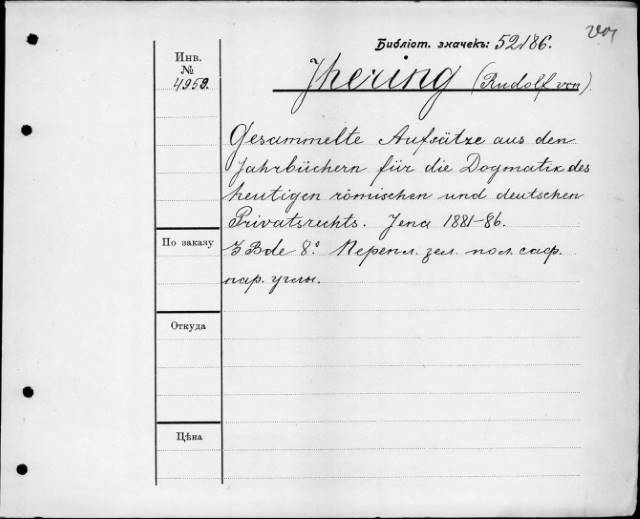 Библіот. значекъ: 52186.
Инв.
№
4958.
Jhering (Rudolf von)
Gesammelte Aufsätze aus den
Jahrbüchern für die Dogmatik des
heutigen römischen und deutschen
Privatsrechts. Jena 1881-86.
3 Bde 8.° Перепл. зел. пол. саф.
нар. углы.
По заказу
Откуда
Цѣна